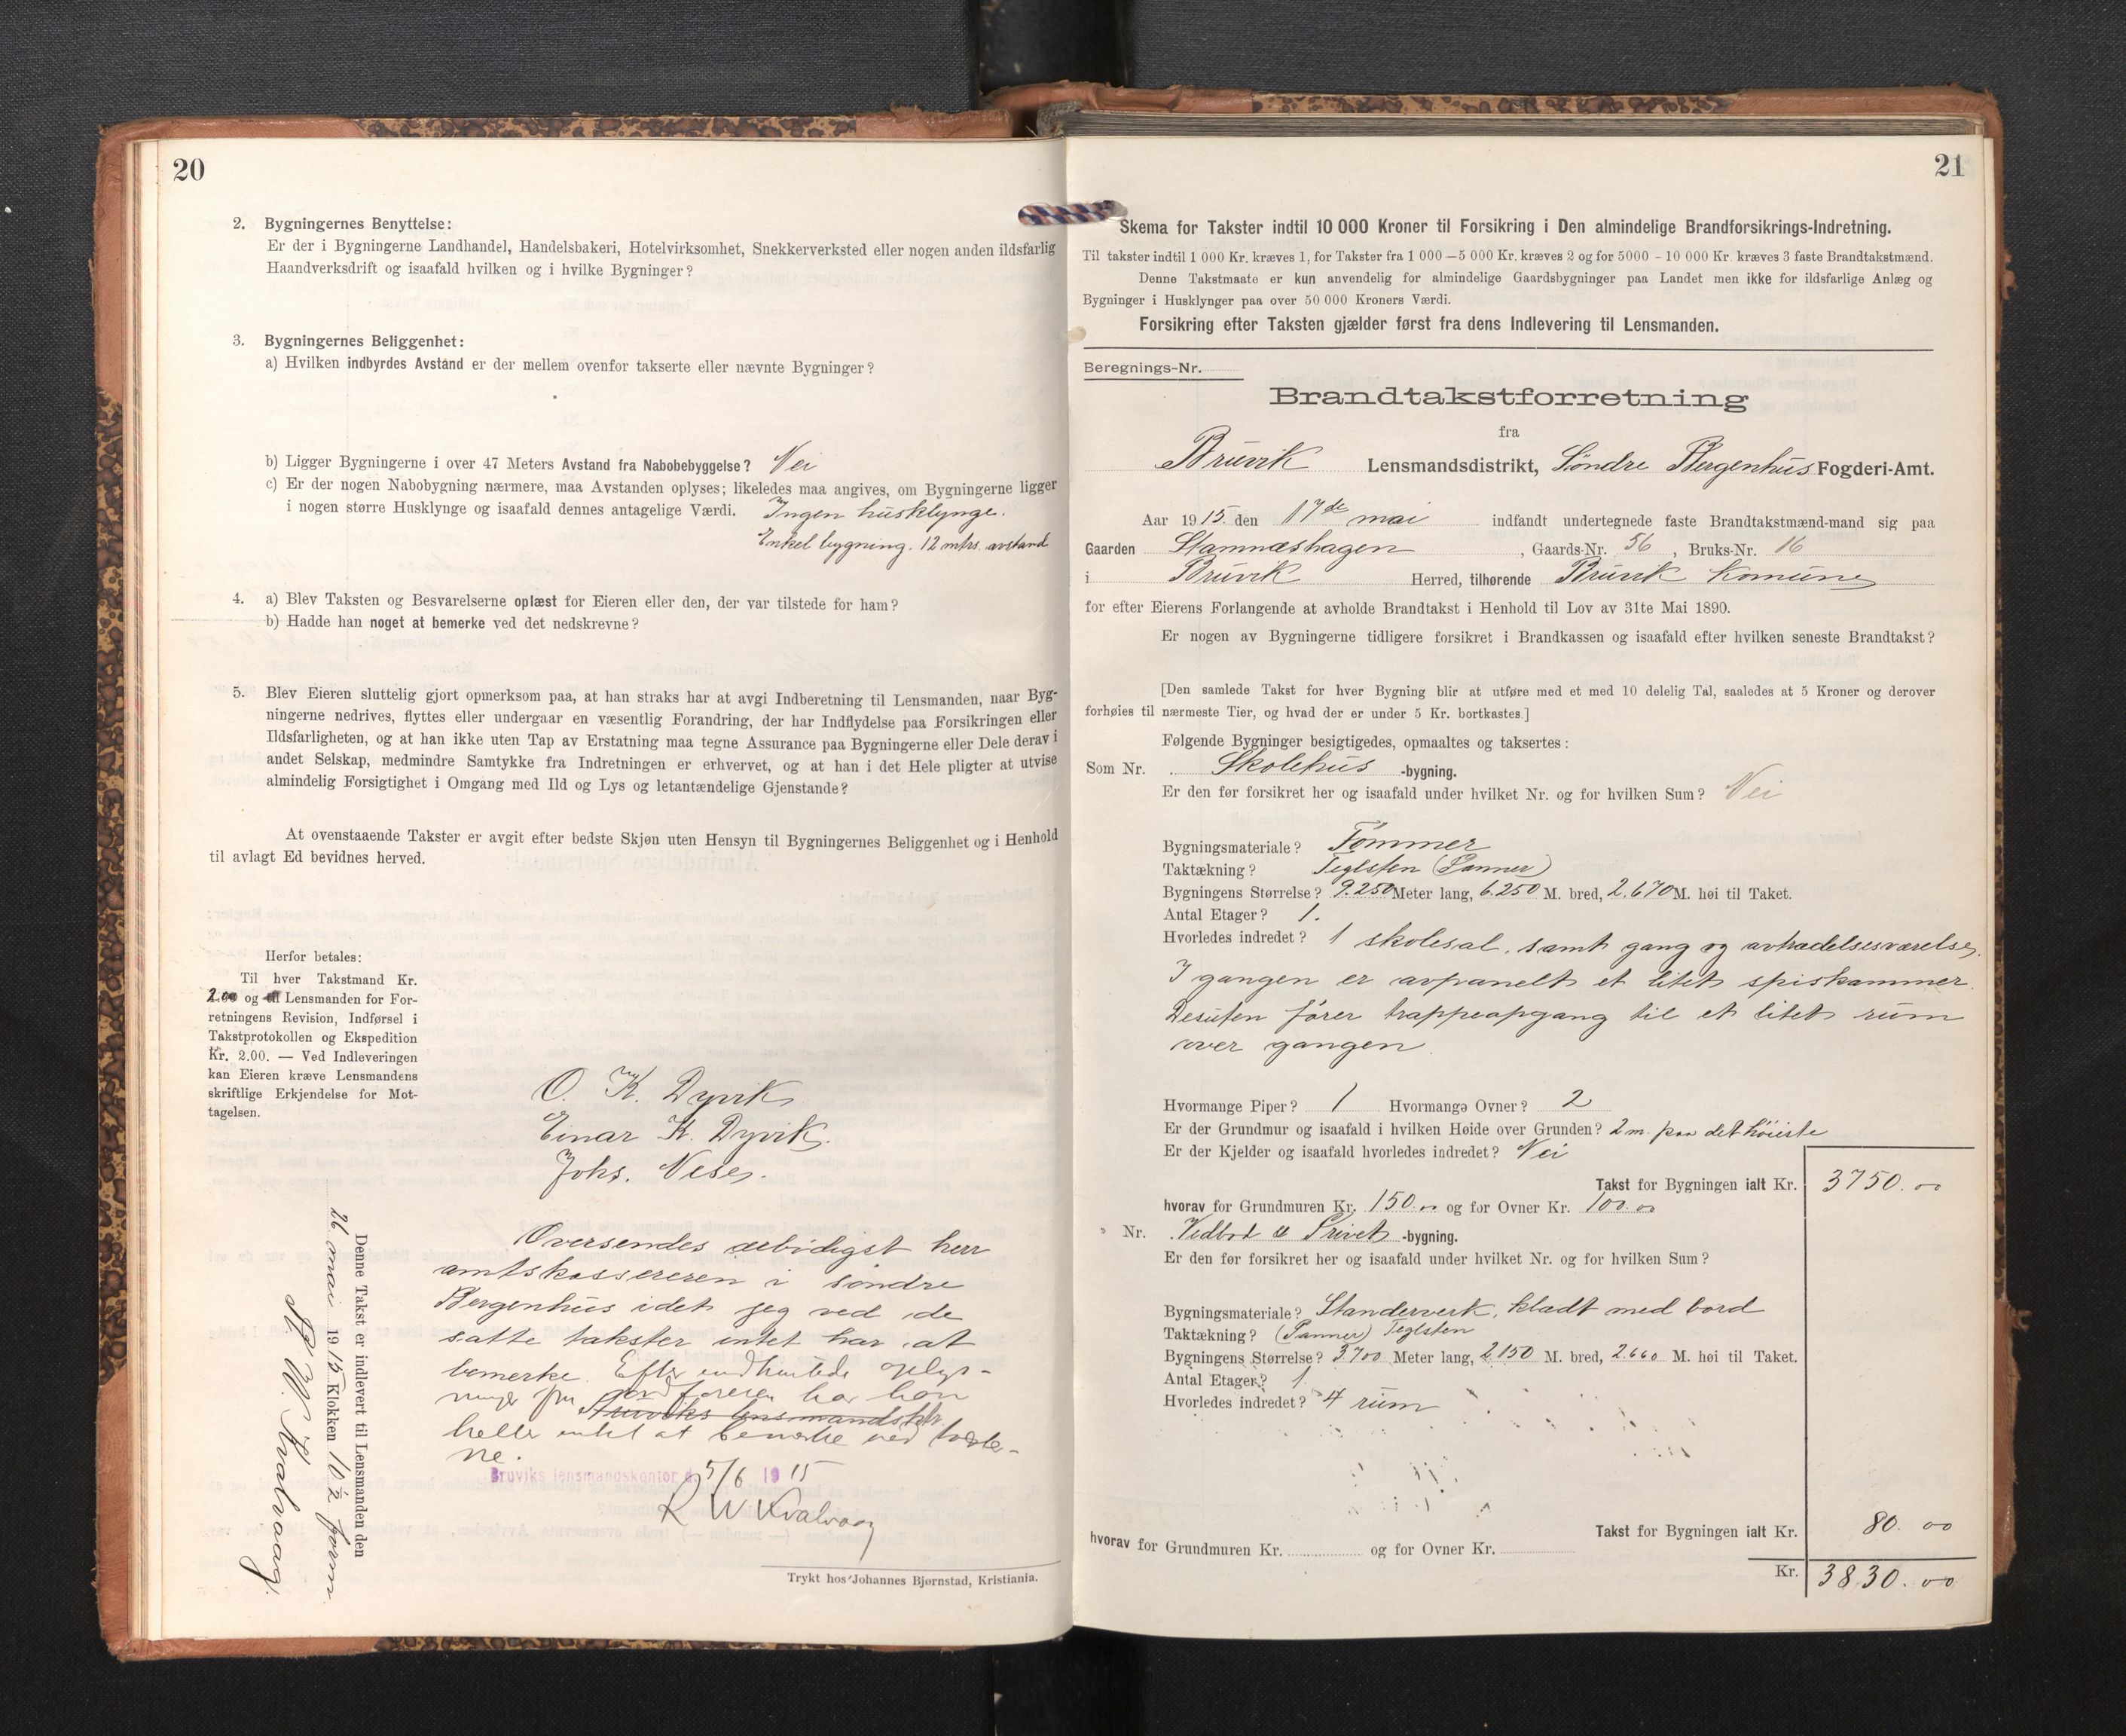 20
2. Bygningernes Benyttelse:
Er der i Bygningerne Landhandel, Handelsbakeri, Hotelvirksomhet, Snekkerverksted eller nogen anden ildsfarlig
Haandverksdrift og isaafald hvilken og i hvilke Bygninger?
3. Bygningernes Beliggenhet:
a) Hvilken indbyrdes Avstand er der mellem ovenfor takserte eller nævnte Bygninger?
b) Ligger Bygningerne i over 47 Meters Avstand fra Nabobebyggelse? Nei
c) Er der nogen Nabobygning nærmere, maa Avstanden oplyses; likeledes maa angives, om Bygningerne ligger
i nogen større Husklynge og isaafald dennes antagelige Værdi. Ingen husklynge.
Enkel bygning. 12 mtrs. avstand
4. a) Blev Taksten og Besvarelserne oplæst for Eieren eller den, der var tilstede for ham?
b) Hadde han noget at bemerke ved det nedskrevne?
5. Blev Eieren sluttelig gjort opmerksom paa, at han straks har at avgi Indberetning til Lensmanden, naar Byg-
ningerne nedrives, flyttes eller undergaar en væsentlig Forandring, der har Indflydelse paa Forsikringen eller
Ildsfarligheten, og at han ikke uten Tap av Erstatning maa tegne Assurance paa Bygningerne eller Dele derav i
andet Selskap, medmindre Samtykke fra Indretningen er erhvervet, og at han i det Hele pligter at utvise
almindelig Forsigtighet i Omgang med Ild og Lys og letantændelige Gjenstande?
At ovenstaaende Takster er avgit efter bedste Skjøn uten Hensyn til Bygningernes Beliggenhet og i Henhold
til avlagt Ed bevidnes herved.
Herfor betales:
Til hver Takstmand Kr.
2.00 og til Lensmanden for For-
retningens Revision, Indførsel i
Takstprotokollen og Ekspedition
Kr. 2.00. — Ved Indleveringen
kan Eieren kræve Lensmandens
skriftlige Erkjendelse for Mot-
tagelsen.
O. K. Dyvik
Einar K. Dyvik.
Johs. Nese.
Oversendes ærbødigst herr
amtskassereren i söndre
Bergenhus idet jeg ved de
satte takster intet har at
bemerke. Efter indhentede oplys-
ninger fra ordföreren har han
Bruviks lensmandsktr.
heller intet at bemerke ved takste-
ne.
Bruviks lensmandskontor d. 5/6 1915
R W Kvalvaag
Denne Takst er indlevert til Lensmanden den
26 mai 1915 Klokken 10 1/2 form.
R. W. Kvalvaag.
Trykt hos Johannes Bjørnstad, Kristiania.
21
Skema for Takster indtil 10 000 Kroner til Forsikring i Den almindelige Brandforsikrings-Indretning.
Til takster indtil 1 000 Kr. kræves 1, for Takster fra 1 000—5 000 Kr. kræves 2 og for 5000 - 10 000 Kr. kræves 3 faste Brandtakstmænd.
Denne Takstmaate er kun anvendelig for almindelige Gaardsbygninger paa Landet men ikke for ildsfarlige Anlæg og
Bygninger i Husklynger paa over 50 000 Kroners Værdi.
Forsikring efter Taksten gjælder først fra dens Indlevering til Lensmanden.
Beregnings-Nr.
Brandtakstforretning
fra
Bruvik Lensmandsdistrikt, Søndre Bergenhus Fogderi-Amt.
Aar 1915. den 17de mai indfandt undertegnede faste Brandtakstmænd-mand sig paa
Gaarden Stamnæshagen, Gaards-Nr. 56, Bruks-Nr. 16
i Bruvik Herred, tilhørende Bruvik Komune
for efter Eierens Forlangende at avholde Brandtakst i Henhold til Lov av 31te Mai 1890.
Er nogen av Bygningerne tidligere forsikret i Brandkassen og isaafald efter hvilken seneste Brandtakst?
[Den samlede Takst for hver Bygning blir at utføre med et med 10 delelig Tal, saaledes at 5 Kroner og derover
forhøies til nærmeste Tier, og hvad der er under 5 Kr. bortkastes.]
Følgende Bygninger besigtigedes, opmaaltes og taksertes:
Som Nr. Skolehus -bygning.
Er den før forsikret her og isaafald under hvilket Nr. og for hvilken Sum? Nei
Bygningsmateriale? Tömmer
Taktækning? Teglsten (Panner)
Bygningens Størrelse? 9.250 Meter lang, 6.250 M. bred, 2.670 M. høi til Taket.
Antal Etager? 1.
Hvorledes indredet? 1 skolesal, samt gang og avtrædelsesværelse,
I gangen er avpanelt et litet spiskammer.
Desuten förer trappeopgang til et litet rum
over gangen.
Hvormange Piper? 1 Hvormange Ovner? 2
Er der Grundmur og isaafald i hvilken Høide over Grunden? 2 m. paa det höieste
Er der Kjelder og isaafald hvorledes indredet? Nei
Takst for Bygningen ialt Kr. 3750.00
hvorav for Grundmuren Kr. 150.00 og for Ovner Kr. 100.00
" Nr. Vedbod & Privet -bygning.
Er den før forsikret her og isaafald under hvilket Nr. og for hvilken Sum?
Bygningsmateriale? Standerverk, klædt med bord
Taktækning? (Panner) Teglsten
Bygningens Størrelse? 3700 Meter lang, 2.150 M. bred, 2.660 M. høi til Taket.
Antal Etager? 1
Hvorledes indredet? 4 rum
Takst for Bygningen ialt Kr. 80.00
hvorav for Grundmuren Kr. og for Ovner Kr.
Kr. 3830.00